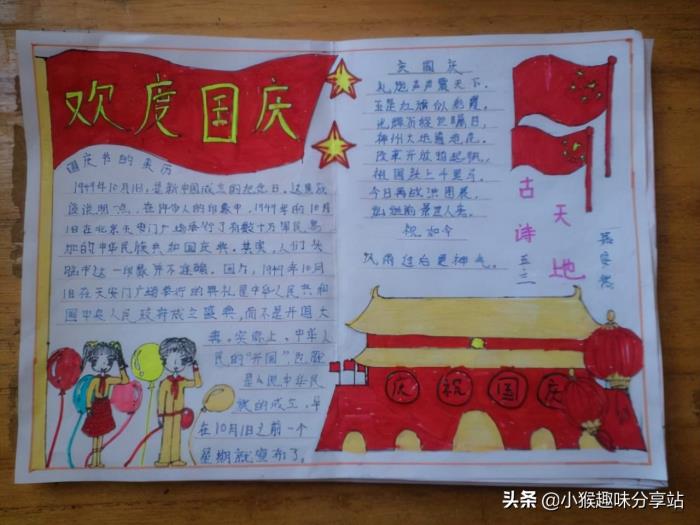 欢度国庆
国庆节的来历
1949年10月1日,是新中国成立的纪念日。这里应
该说明一点,在许多人的印象中,1949年的10月
1日在北京天安门广场举行了有数十万军民参
加的中华民族共和国庆典。其实,人们头
脑中这一印象并不准确。因为,1949年10月
1日在天安门广场举行的典礼是中华人民共和
国中央人民政府成立盛典,而不是开国大
典。实际上,中华人
民的"开国",也就
是说中华民
族的成立,早
在10月1日之前一个
星期就宣布了。
庆国庆
礼炮声声震天下,
五星红旗似彩霞。
光辉历经
神州大地遍地花。
改革开放扬起帆,
祖国跃上千里马。
今日再战洪图展,
祝如今
风雨过后更神气。
古诗天地
五三
庆祝国庆
头条 @小猴趣味分享站